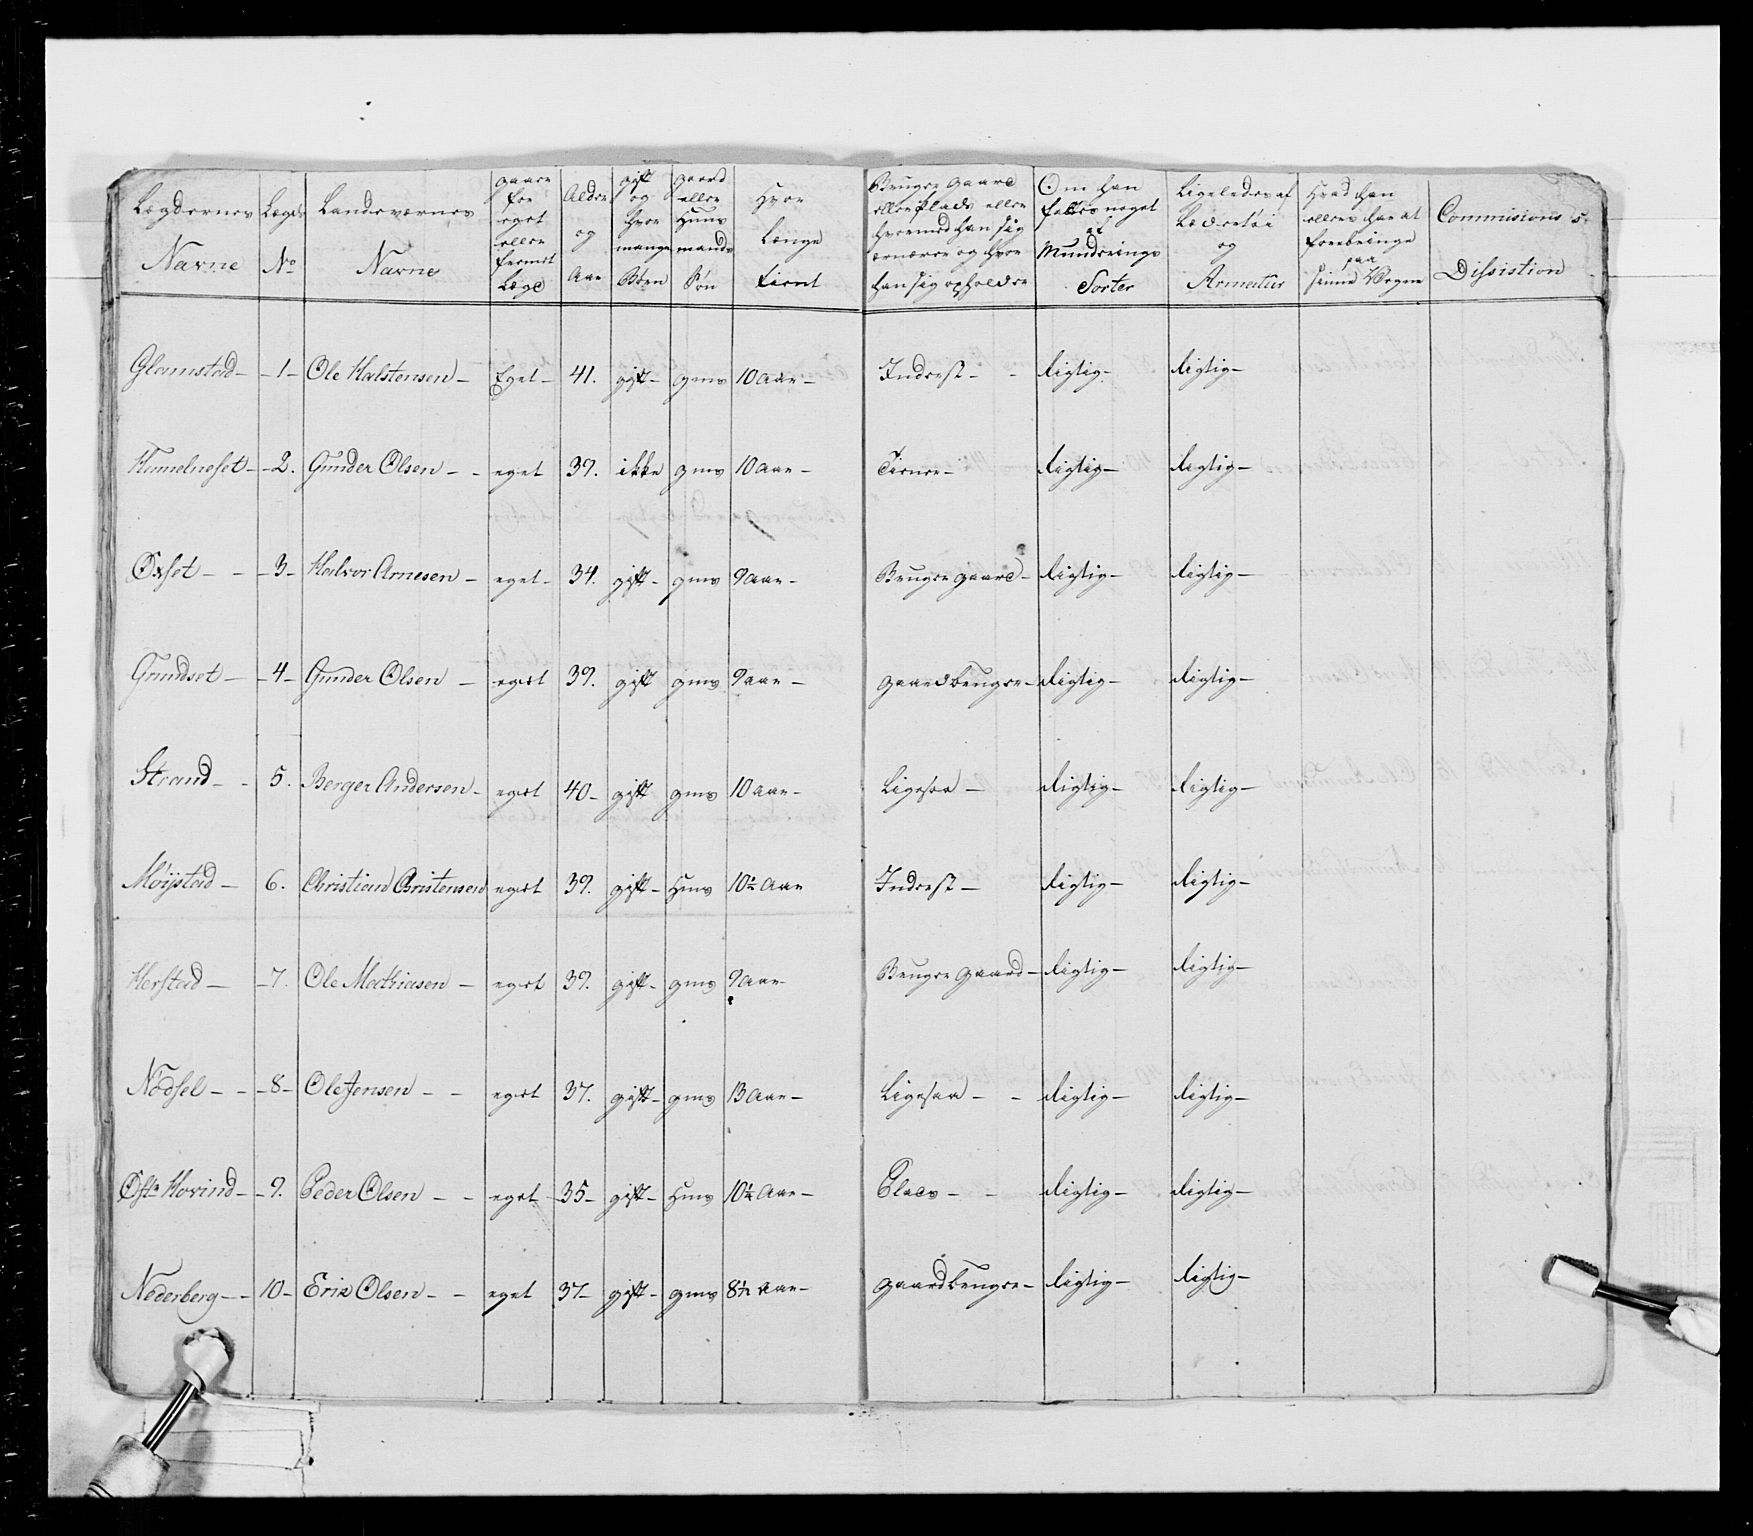 Lægdernes Navne | Lægds No | Landeværnes Navne | gaaer for eget eller fremet Læge | Alder og Aar | gift og hvor mange Børn | gaard eller Huus mands Søn | Hvor Længe tient | Bruger gaard eller Plads eller hvormed han sig ernærer og hvor han sig opholder | Om han fattes noget af Mundrings Sorter | Ligeledes af Lædertøi og Armatur | Hvad han ellers har at forebringe paa sinne Vegne | Commisions Dissistion
Glamstad - | 1 | Ole Halstensen - | Eget - | 41. | gift - | gms | 10 aar - | Inderst - | rigtig - | rigtig -
Hemelneset - | 2. | Gunder Olsen - - | eget | 39. | ikke | gms | 10 aar - | Tiener - | rigtig - | rigtig -
Øxset - - | 3 - | Halvor Arnesen - | eget - | 34. | gift - | gms | 9 aar - | Bruger gaard - | rigtig - | rigtig -
Grundset - | 4 - | Gunder Olsen - | eget | 39. | gift | gms | 9 aar - | gaardbruger - | rigtig - | rigtig -
Strand - - | 5. | Berger Andersen - | eget | 40 - | gift | gms | 10 aar - | Ligesaa - | rigtig - | rigtig -
Møystad - | 6. | Christian Christensen | eget | 39. | gift - | Hms | 10½ Aar | Inderst - | rigtig - | rigtig -
Herstad - | 7. | Ole Mathiesen - | eget | 39. | gift - | gms | 9 aar | Bruger gaard - | rigtig - | rigtig -
Nødsel - - | 8 - | Ole Jensen - - | eget | 37. | gift - | gms | 13 Aar - | Ligesaa - - | rigtig - | rigtig -
Østr Hovind - | 9. | Peder Olsen - - | eget | 35 - | gift - | Hms | 10¼ Aar - | Plads - - | rigtig - | rigtig -
Nederberg - - | 10 - | Erik Olsen - - | eget | 37 - | gift - | gms | 8½ aar - | gaardbruger - | rigtig - | rigtig -